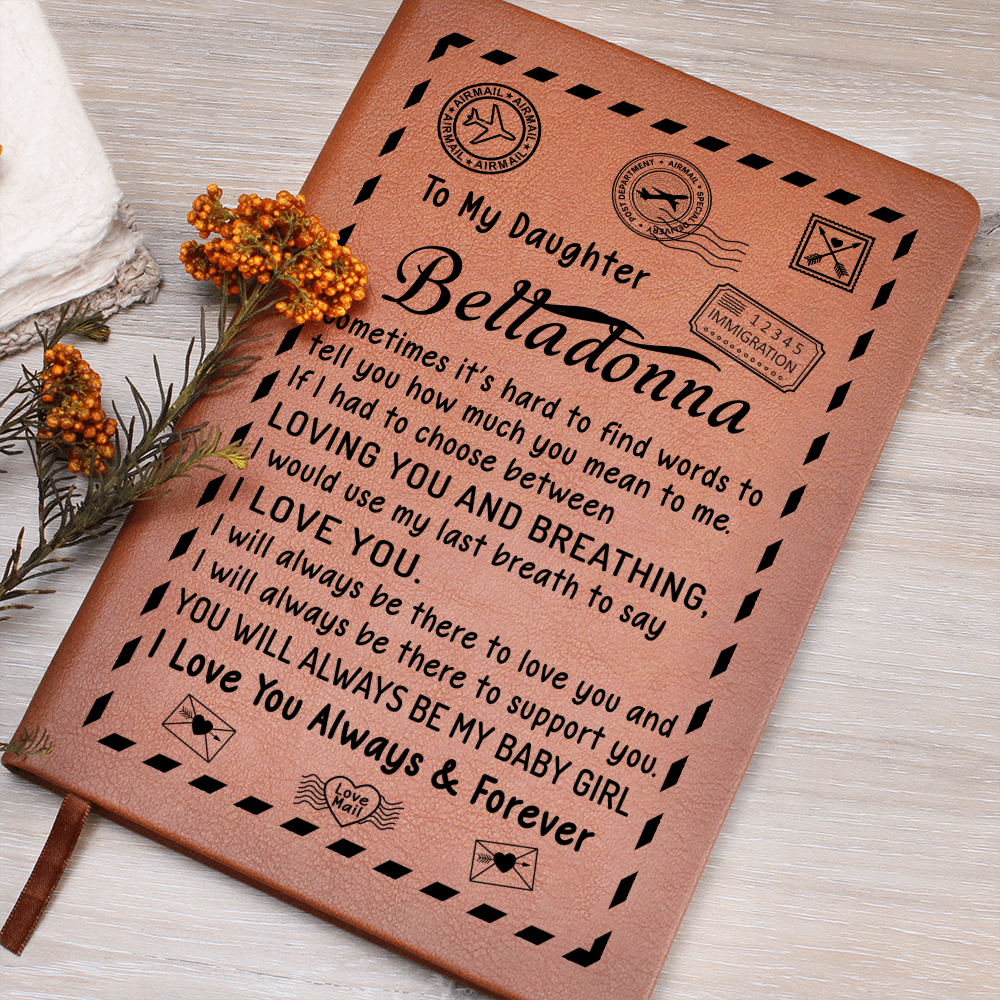 ★ AIRMAIL ★ AIRMAIL ★ AIRMAIL ★ AIRMAIL
POST DEPARTMENT • AIRMAIL • SPECIAL DELIVERY •
To My Daughter
Belladonna
12345
IMMIGRATION
Sometimes it's hard to find words to
tell you how much you mean to me.
If I had to choose between
LOVING YOU AND BREATHING,
I would use my last breath to say
I LOVE YOU.
I will always be there to love you and
I will always be there to support you.
YOU WILL ALWAYS BE MY BABY GIRL
I Love You Always & Forever
Love
Mail